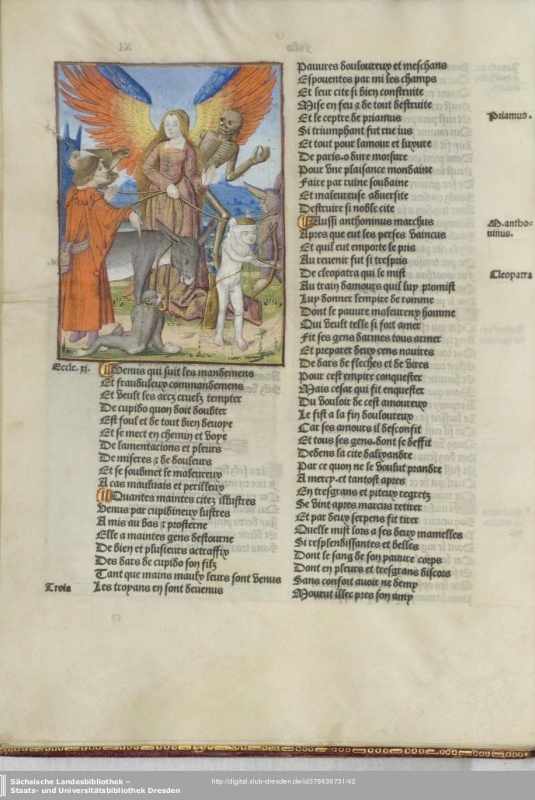 Folio XI
Eccle. xi.
Venus qui suit les mandemens
Et frauduleux commandemens
Et veult les arcz cruelz tempter
De cupido quon doit doubter
Est foul et de tout bien devoye
Et se mect en chemin et voye
De lamentacions et pleurs
De miseres & de douleurs
Et se soubmet le maleureux
A cas maulvais et perilleux
Quantes maintes citez illustres
Venus par cupidineux lustres
A mis au bas & prosterne
Elle a maintes gens destourne
De bien et plusieurs
Des dars de cupido son filz
Tant que mains maulx leurs sont venus
Troia
Les troyans en sont devenus
Pauures douloureux et meschans
Espouentes par mi les champs
Et leur cite si bien construite
Mise en feu & de tout destruite
Et le ceptre de priamus
Priamus.
Si triumphant fut rue ius
Et tout pour lamour et luxure
De paris. o dure morsure
Pour vne plaisance mondaine
Faire par ruine soudaine
Et maleureuse aduersite
Destruire si noble cite
Aussi anthoninus marchus
M. antho=
ninus.
Apres que eut les perses vaincus
Et quil eut emporte le pris
Au reuenir fut si trespris
De cleopatra qui le mist
Cleopatra
Au train damours quil luy promist
Luy donner lempire de romme
Dont le pauure maleureux homme
Qui veult telle si fort amer
Fit ses gens darmes tous armer
Et preparer deux cens nauires
De dars de fleches et de vires
Pour cest empire conquester
Mais cesar qui fit enquester
Du vouloir de cest amoureux
Le fist a la fin douloureux
Car ses amours il desconfit
Et tous ses gens. dont se deffit
Dedens la cite dalixandre
Par ce quon ne le voulut prandre
A mercy. et tantost apres
En tresgrans et piteux regretz
Se vint apres marcus retirer
Et par deux serpens fit tirer
Quelle mist lors a ses deux mamelles
Si resplendissantes et belles
Dont le sang de son pauure corps
Dont en pleurs et tresgrans discors
Sans confort auoir ne demy
Mourut illec pres son amy
Sächsische Landesbibliothek –
Staats- und Universitätsbibliothek Dresden
http://digital.slub-dresden.de/id378636731/42